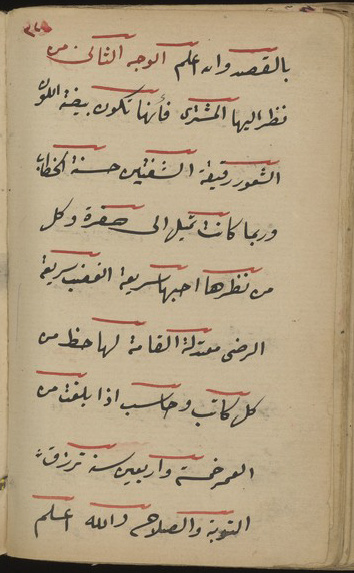 بالقصد والله اعلم الوجه الثانى من
نظر اليها المشترى فأنها تكون بيضة اللون
الشعور رقيقة الشفتين حسنة الخطاب
وربما كانت تميل الى صفرة وكل
من نظرها احبها سريعة الغضب سريعة
الرضى معتدلة القامة لها حظ من
كل كاتب وحاسب اذا بلغت من
العمر خمسة واربعين سنة ترزق
التوبة والصلاح والله اعلم